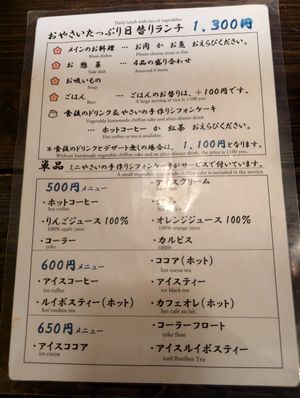 Daily lunch with lots of vegetables
おやさいたっぷり日替りランチ 1,300円
メインのお料理 … お肉 か お魚 おえらびください。
Main dishes Please choose meat or fish.
お惣菜 … 4品の盛り合わせ
Side dish Assorted 4 items
お吸いもの
Soup
ごはん … ごはんのお替りは、+100円です。
Rice A large serving of rice is +100 yen
食後のドリンク&やさいの手作りシフォンケーキ
Vegetable homemade chiffon cake and after-dinner drink
… ホットコーヒー か 紅茶 おえらびください。
Hot coffee or tea is available.
*食後のドリンクとデザート無しの場合は、1,100円となります。
Without handmade vegetable chiffon cake and an after-dinner drink, the price is 1100 yen.
単品 ミニやさいの手作りシフォンケーキがサービスで付いています。
A small vegetable handmade chiffon cake is included in the service.
500円メニュー
・アイスクリーム
・ホットコーヒー
hot coffee
・りんごジュース 100%
100% apple juice
・オレンジジュース 100%
100% orange juice
・コーラー
coke
・カルピス
calpis
600円メニュー
・ココア(ホット)
hot cocoa tea
・アイスコーヒー
ice coffee
・アイスティー
ice black tea
・ルイボスティー(ホット)
hot rooibos tea
・カフェオレ(ホット)
hot café au lait
650円メニュー
・コーラーフロート
coke float
・アイスココア
ice cocoa
・アイスルイボスティー
iced Rooibos Tea